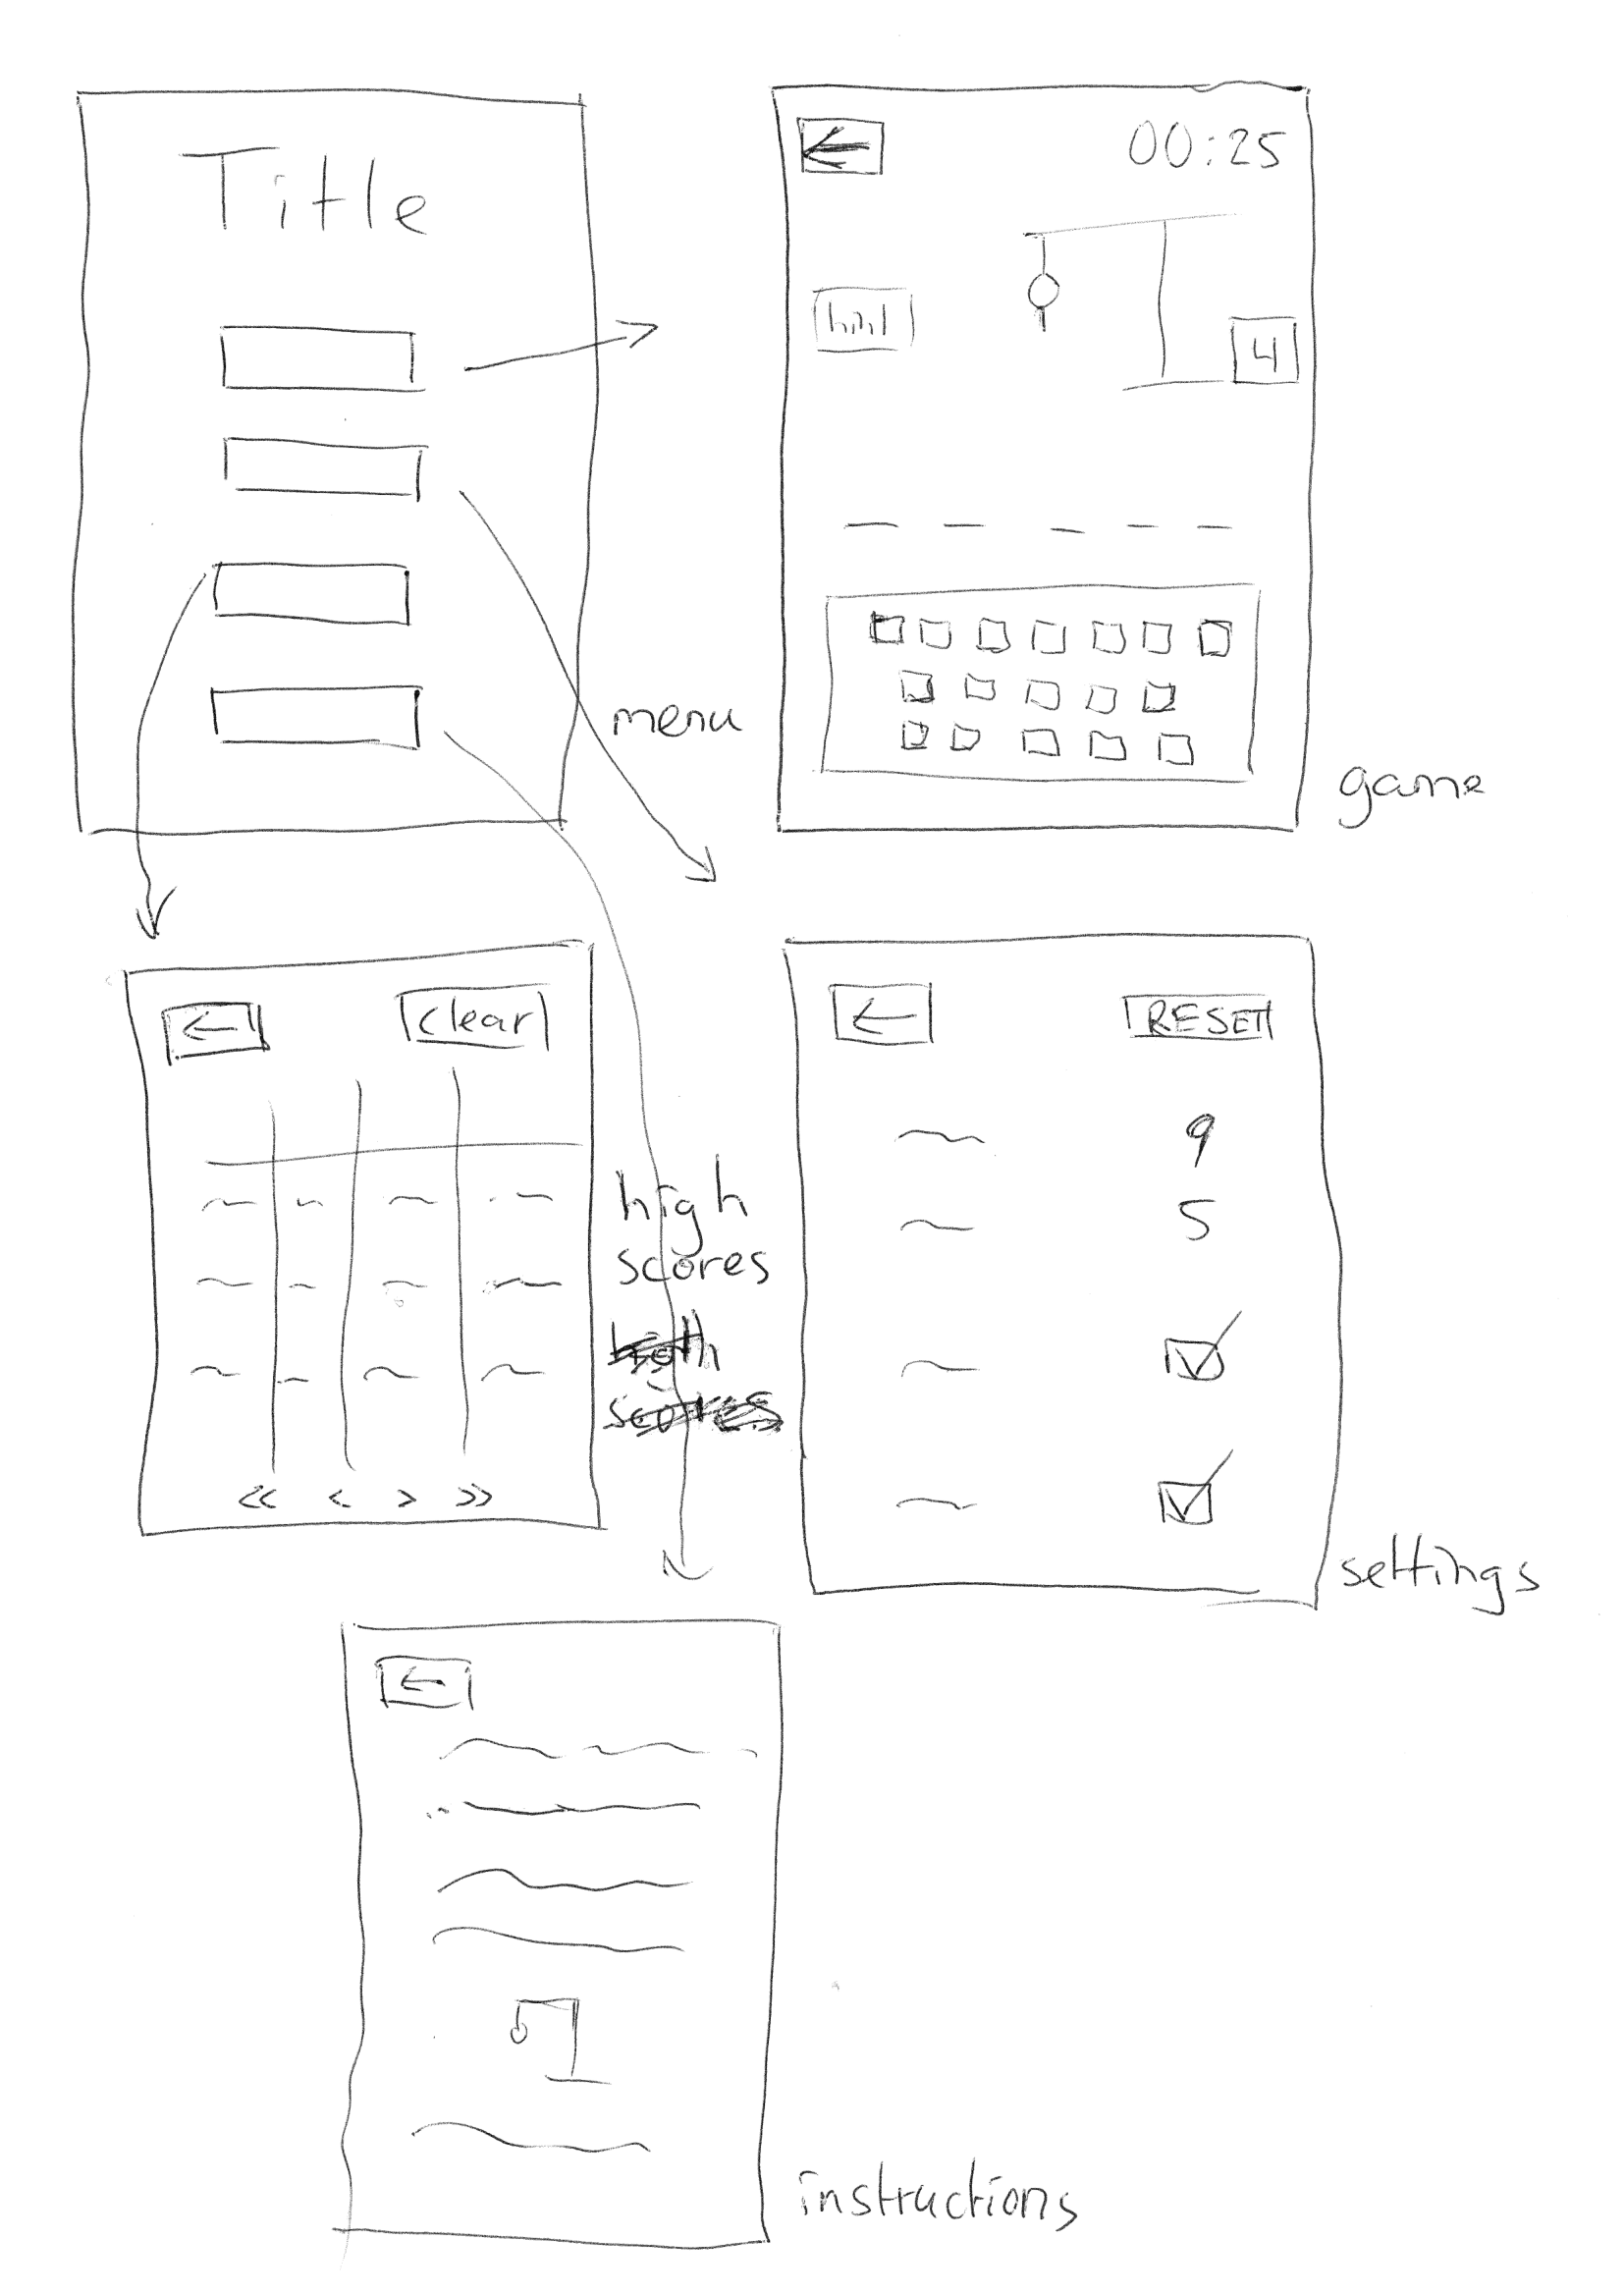 Title
menu
00:25
hint
4
game
clear
high
scores
<< < > >>
RESET
9
5
settings
instructions